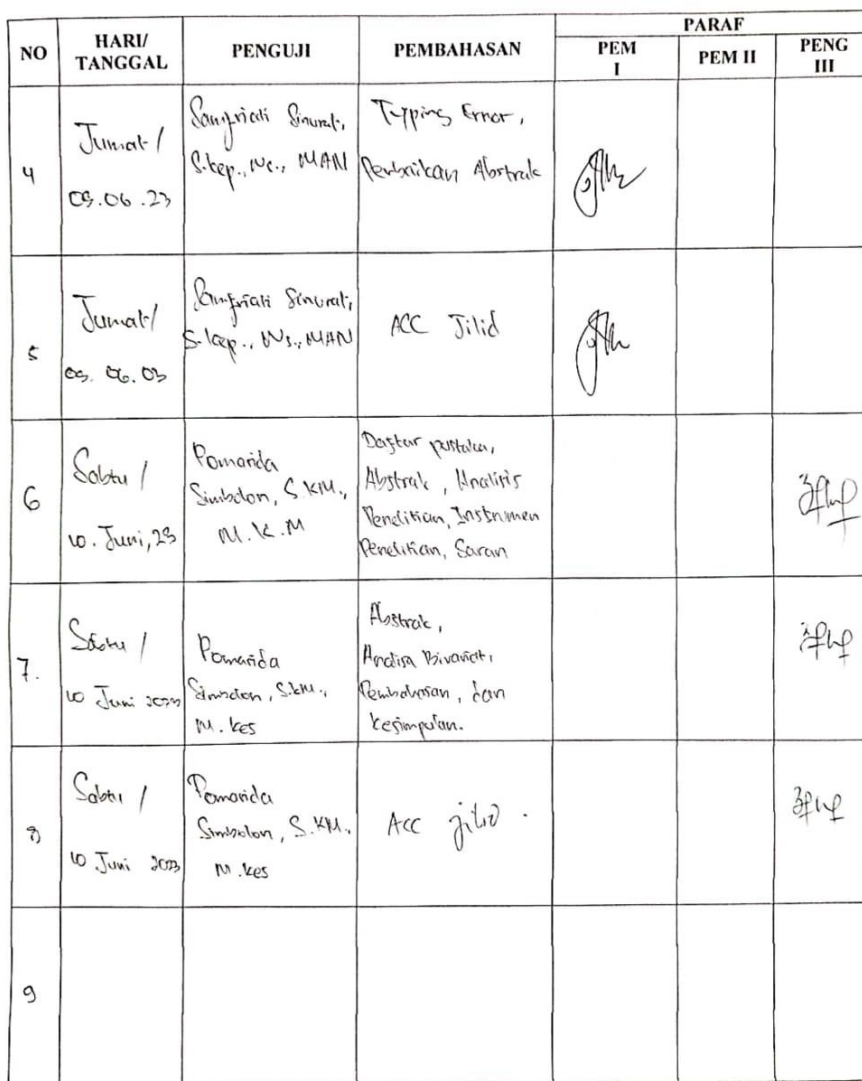 NO HARI/ TANGGAL PENGUJI PEMBAHASAN PARAF
PEM I PEM II PENG III
4 Jumat / 09.06.23
Samfriati Sinurat, S.kep., Ns., MAN
Typing Error, Perbaikan Abstrak
5 Jumat / 09.06.03
Samfriati Sinurat, S.kep., Ns., MAN
ACC Jilid
6 Sabtu / 10. Juni, 23
Pomarida Simbolon, S.KM., M.K.M
Daftar pustaka, Abstrak, Analisis Penelitian, Instrumen Penelitian, Saran
7. Sabtu / 10 Juni 2023
Pomarida Simbolon, S.KM., M.kes
Abstrak, Analisa Bivariat, Pembahasan, dan kesimpulan.
8 Sabtu / 10 Juni 2023
Pomarida Simbolon, S.KM., M.kes
Acc jilid.
9